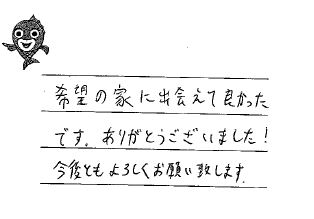 希望の家に出会えて良かった
です。ありがとうございました!
今後ともよろしくお願い致します.